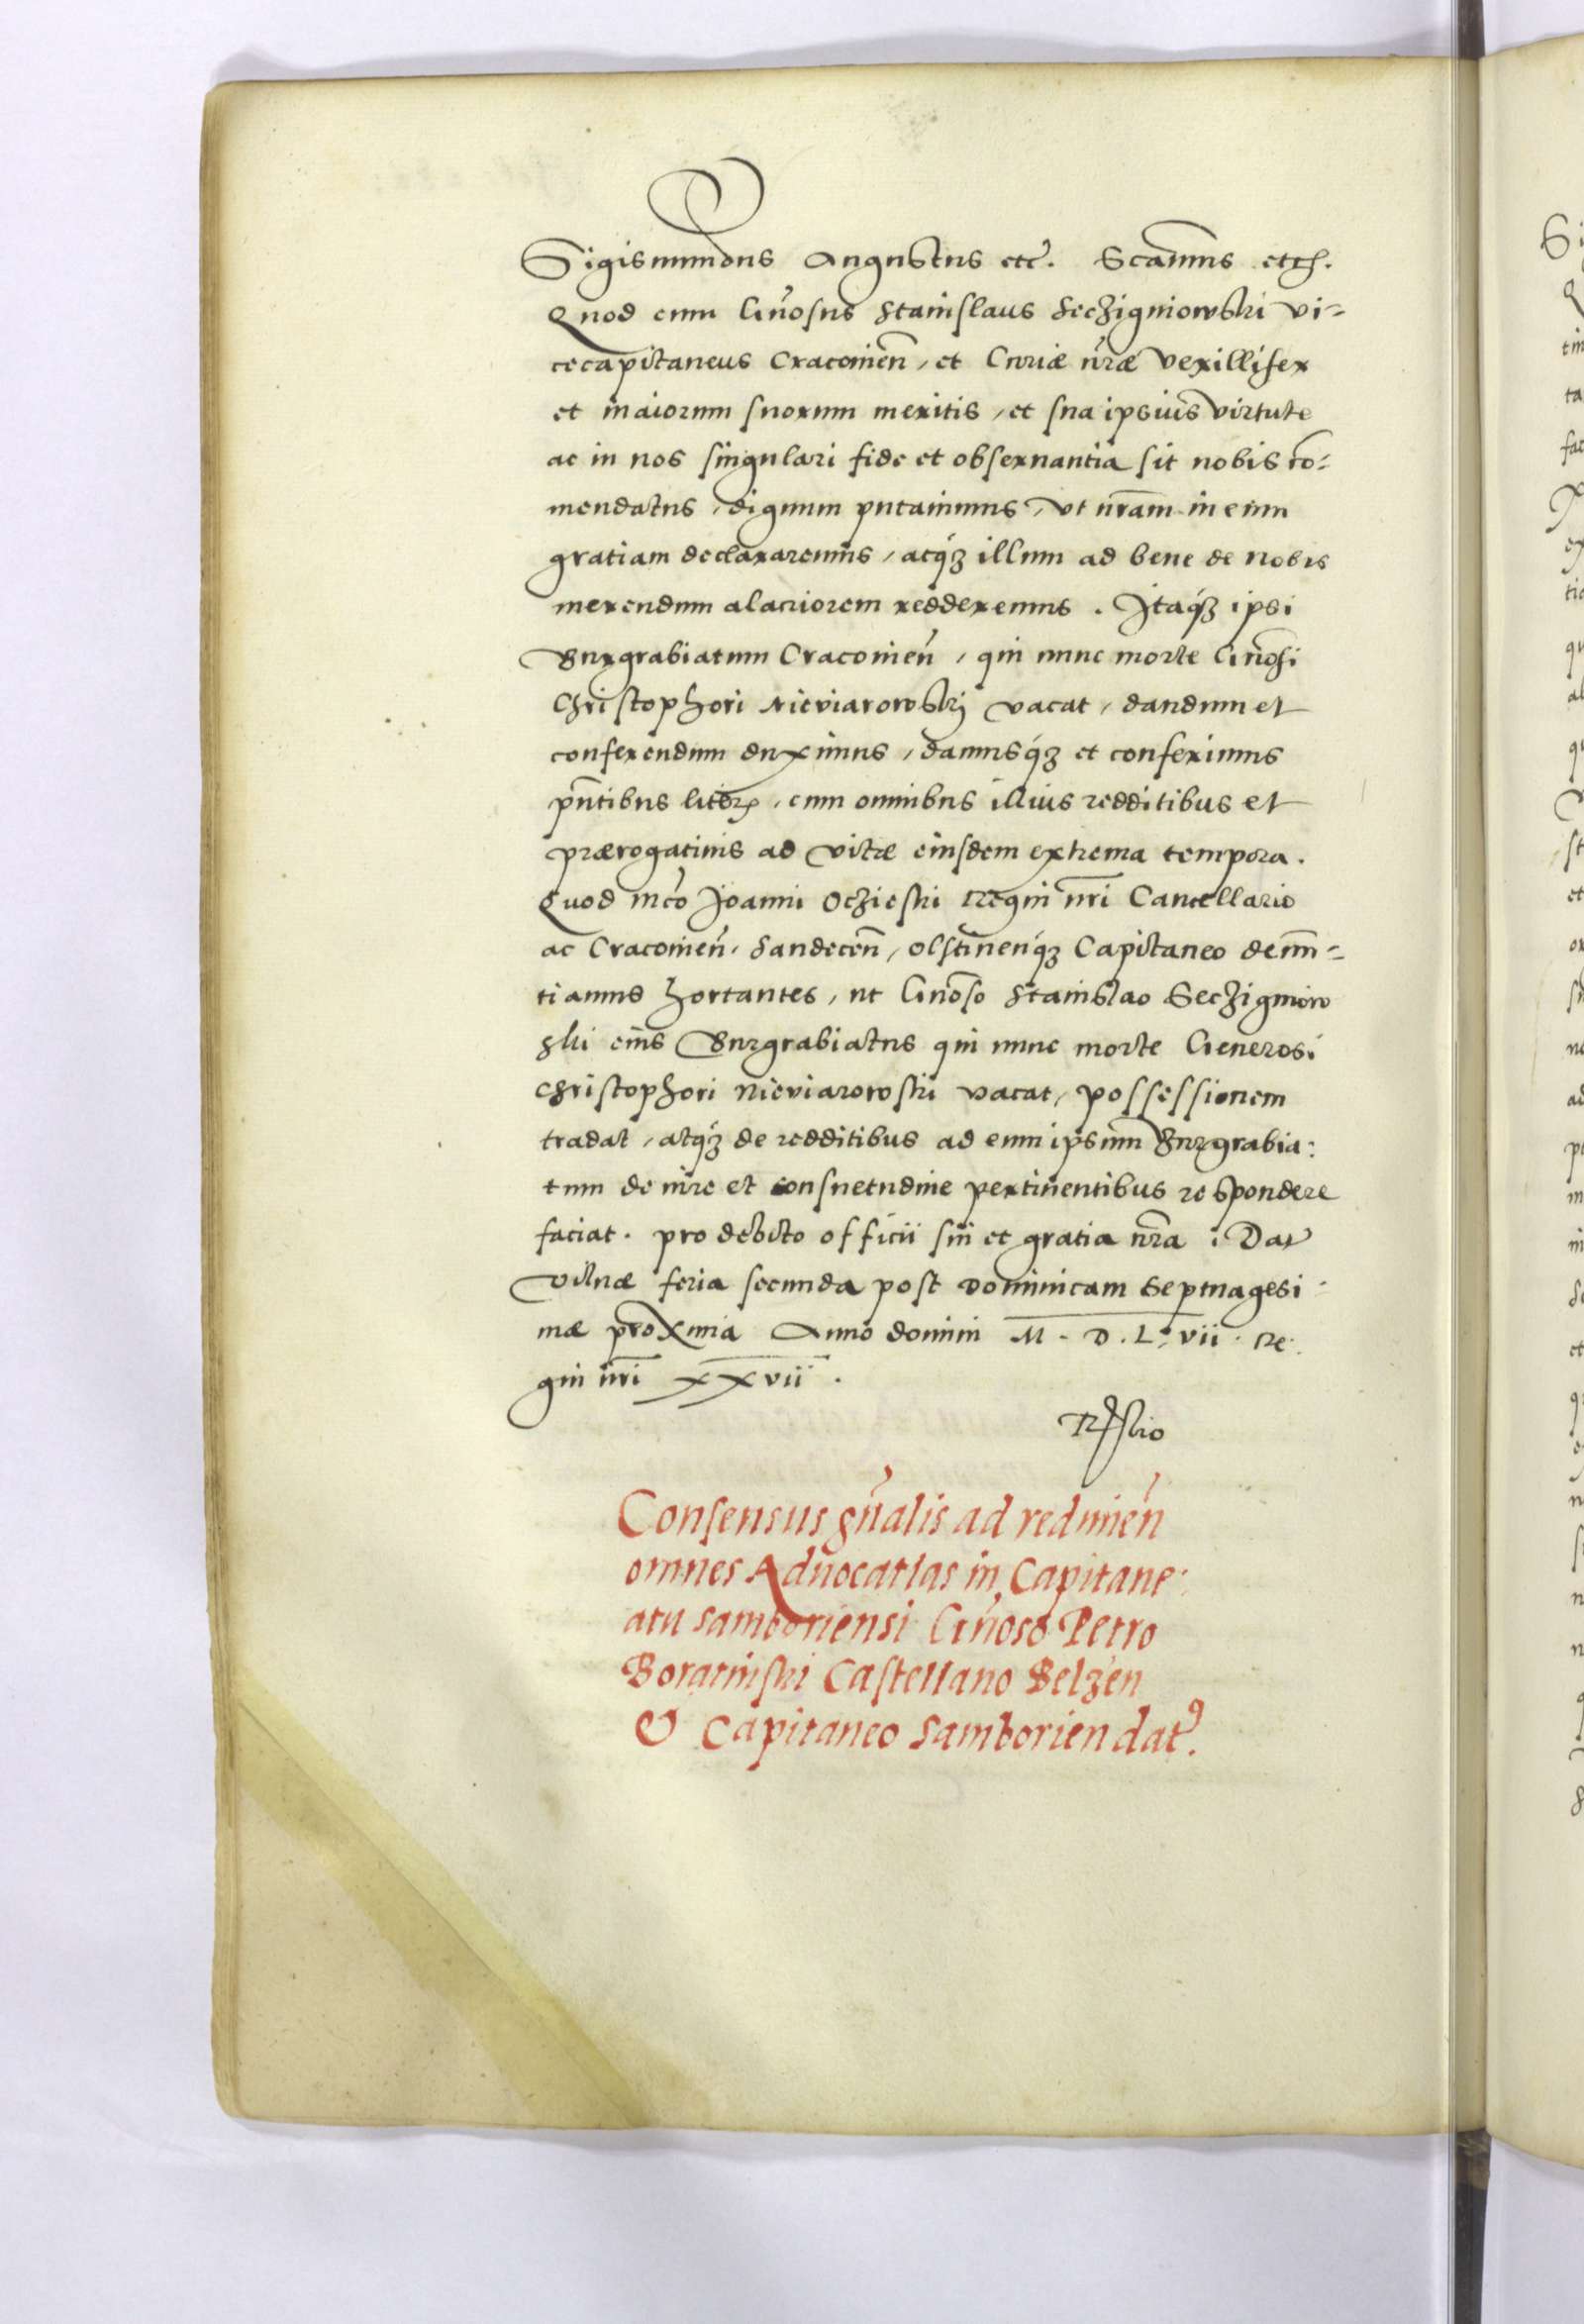 Sigismundus Augustus etc̃. Scamus etc̃.
Quod cum Gñosus Stanislaus Secʒigniowski vi=
cecapitaneus Cracouieñ, et Curiæ nr̃æ vexillifex
et maiorum suorum meritis, et sua ipsius virtute
ac in nos singulari fide et obseruantia sit nobis cõ=
mendatus, dignum putauimus, vt nr̃am in eum
gratiam declararemus, atq́ʒ illum ad bene de nobis
merendum alacriorem redderemus. Itaq́ʒ ipsi
Burgrabiatum Cracouieñ, qui nunc morte Gñosi
Christophori Nieviarowskij vacat, dandum et
conferendum duximus, damusq́ʒ et conferimus
pñtibus literꝭ, cum omnibus illius redditibus et
prærogatiuis ad vitæ eiusdem extrema tempora.
Quod mc̃o Joanni Ocʒieski Regni nr̃i Cancellario
ac Cracouieñ, Sandeceñ, Olstineñq́ʒ Capitaneo denũ=
tiamus hortantes, ut Gñoso Stanislao Secʒigniow
ski eius Burgrabiatus qui nunc morte Generosi
Christophori Nieviarowski vacat, possessionem
tradat, atq́ʒ de redditibus ad eum ipsum Burgrabia:
tum de iure et consuetudine pertinentibus respondere
faciat. pro debito officii sui et gratia nr̃a. Dat
Vilnæ feria secunda post Dominicam Septuagesi-
mæ proxima Anno domini M. D. L. vii. Re:
gni nr̃i xxvii.
Consensus gñalis ad redimeñ
omnes Aduocatias in Capitane:
atu Samboriensi Gñoso Petro
Boratinski Castellano Belʒen
& Capitaneo Samborien datꝰ.